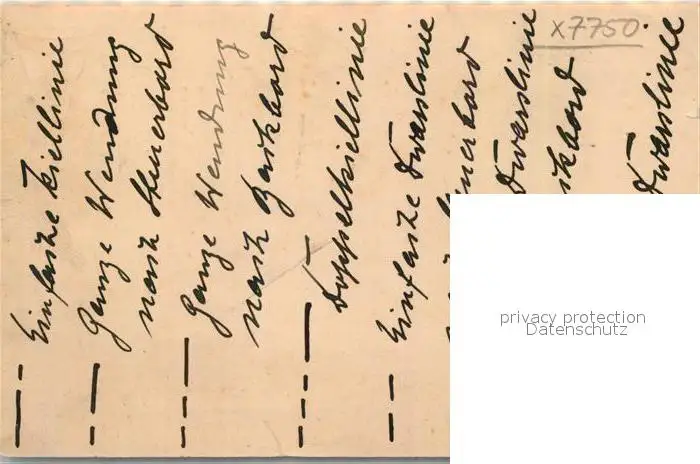 x7750.
— - - Einfache Kiellinie
- — Ganze Wendung
nach Steuerbord
- - — Ganze Wendung
nach Backbord
- - - — Doppelkiellinie
- - Einfache Dwarslinie
Dwarslinie
Dwarslinie
privacy protection
Datenschutz